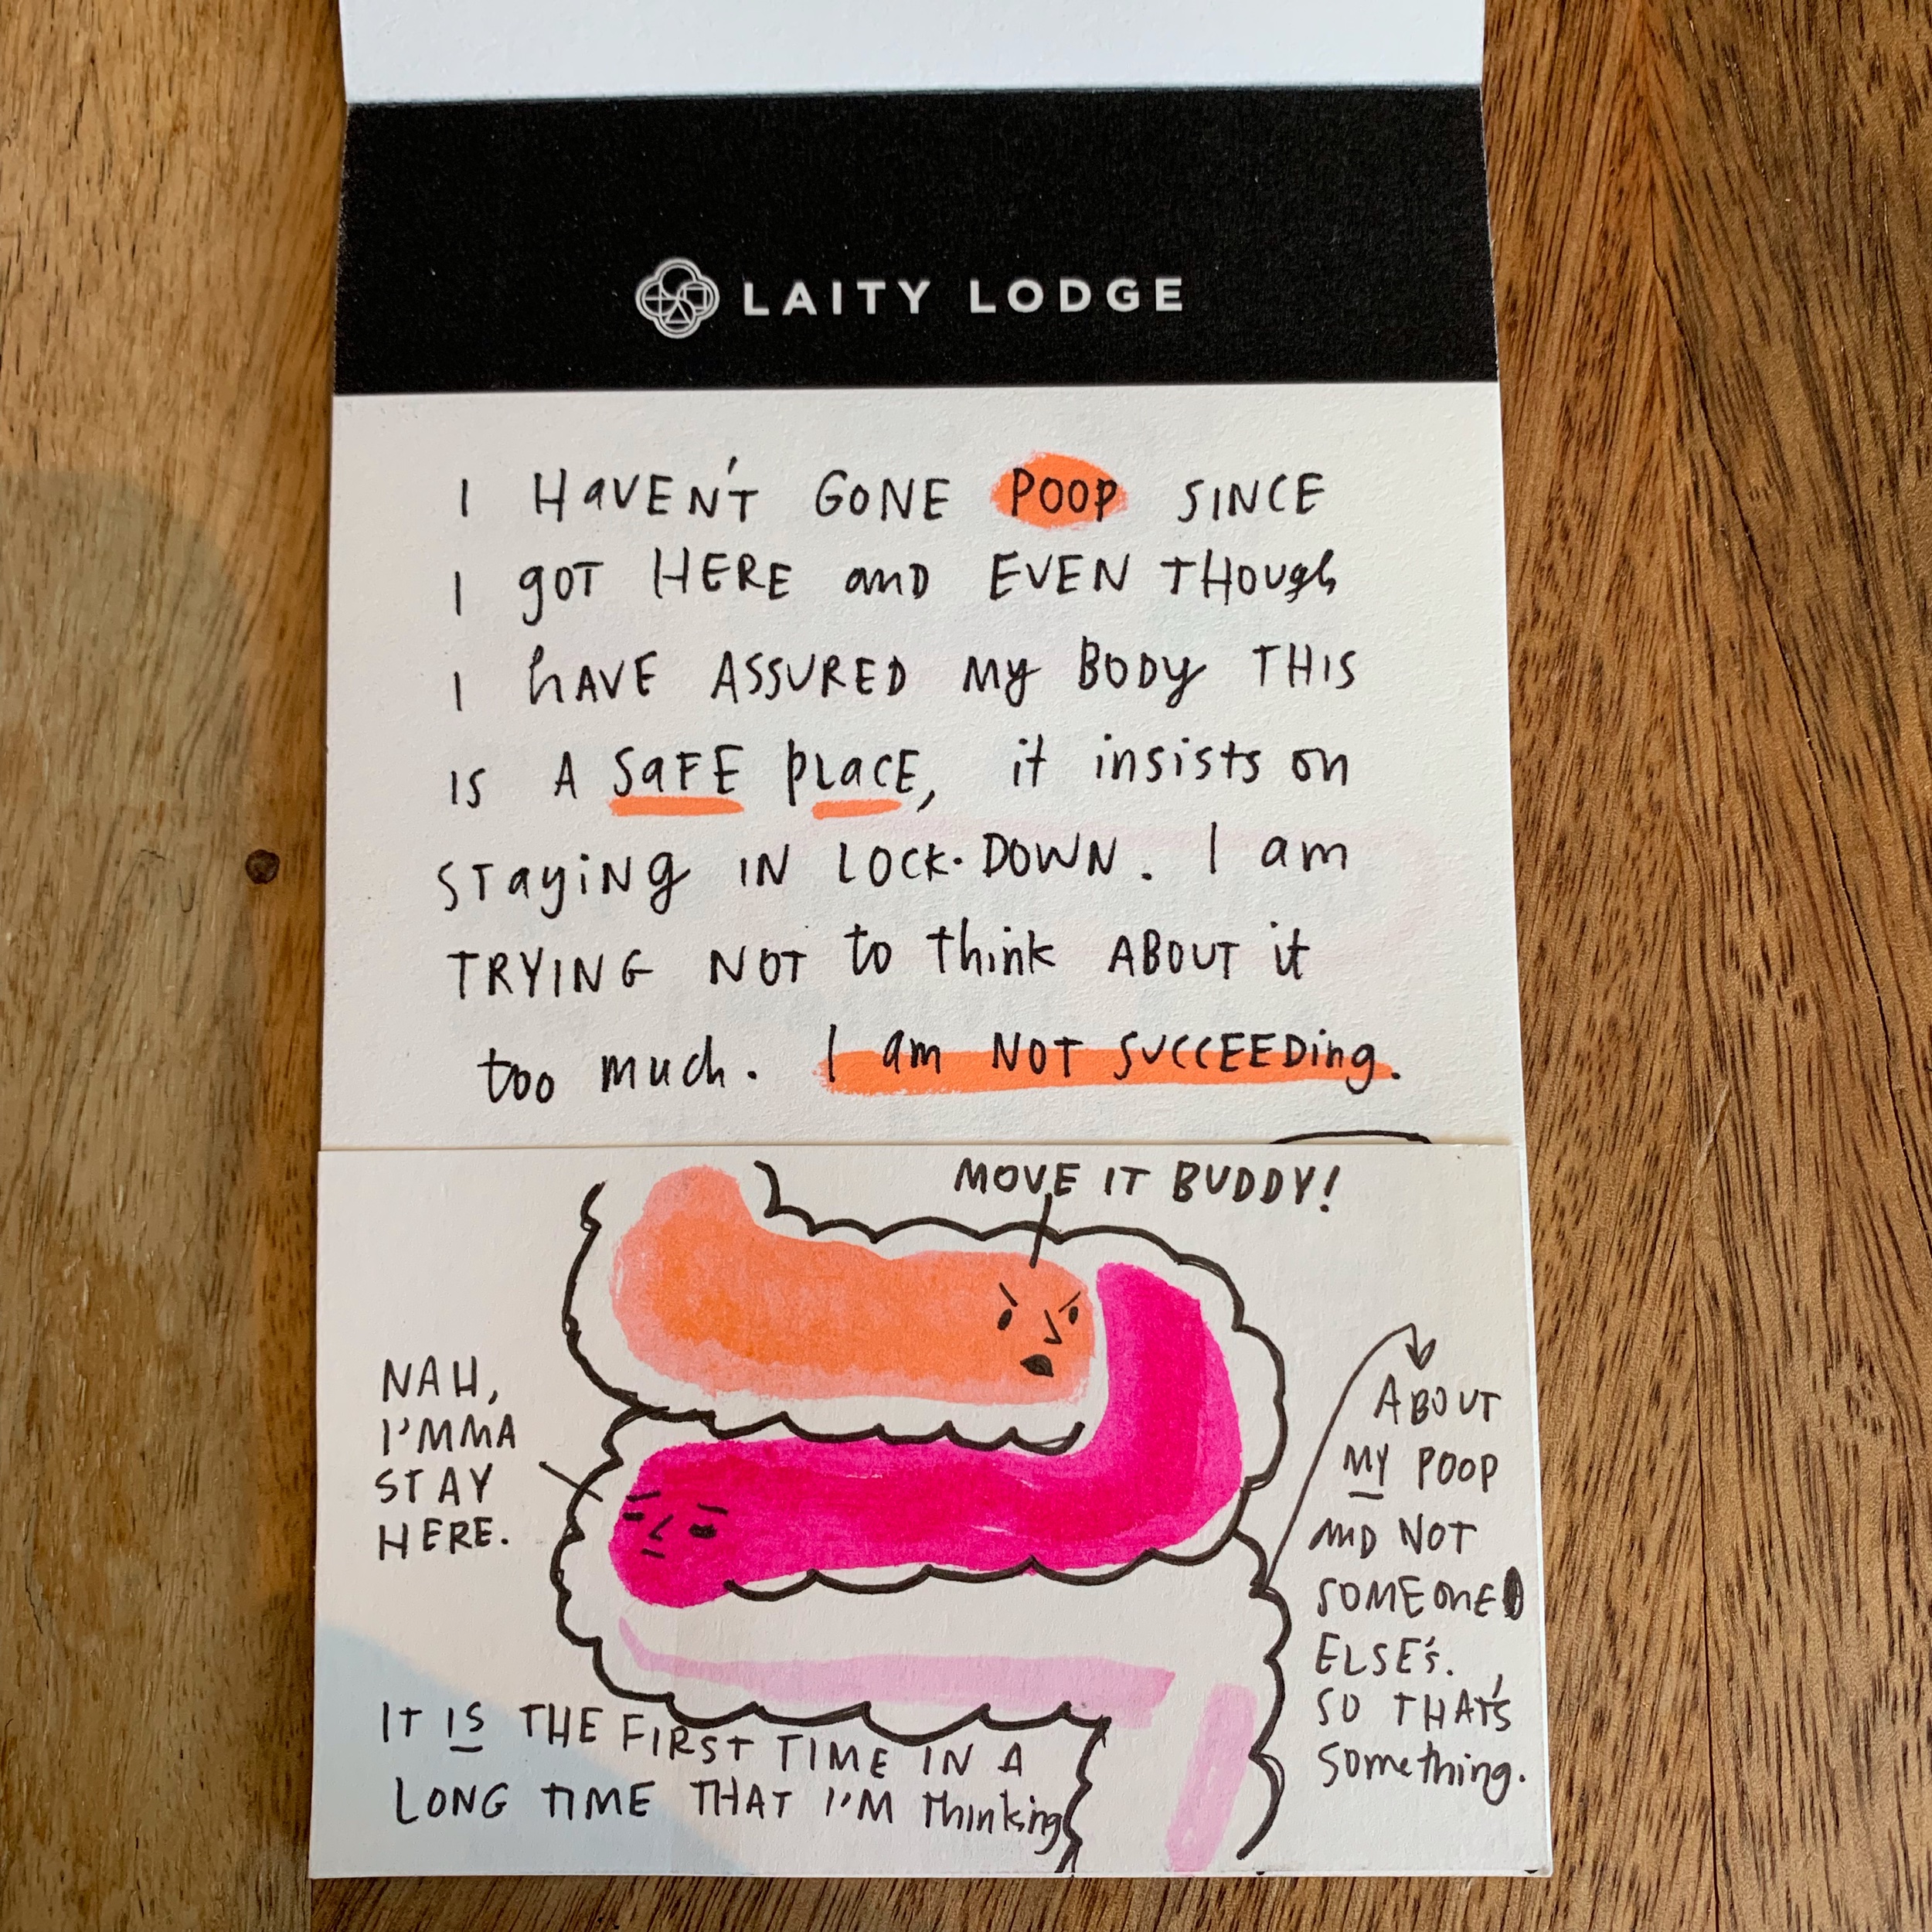 LAITY LODGE
I HaVEN'T GONE POOP SINCE
I gOT HERE and EVEN THOUgh
I hAVE ASSURED My BODy THIS
IS A SaFE pLacE, it insists on
STayiNg IN LOCK-DOWN. I am
TRYING NOT to think ABOUT it
too much. I am NOT SUCCEEDing.
MOVE IT BUDDY!
NAH,
I'MMA
STAY
HERE.
IT IS THE FIRST TIME IN A
LONG TIME THAT I'M Thinking
ABOUT
MY POOP
AND NOT
SOMEONE
ELSE'S.
SO THAT'S
Something.